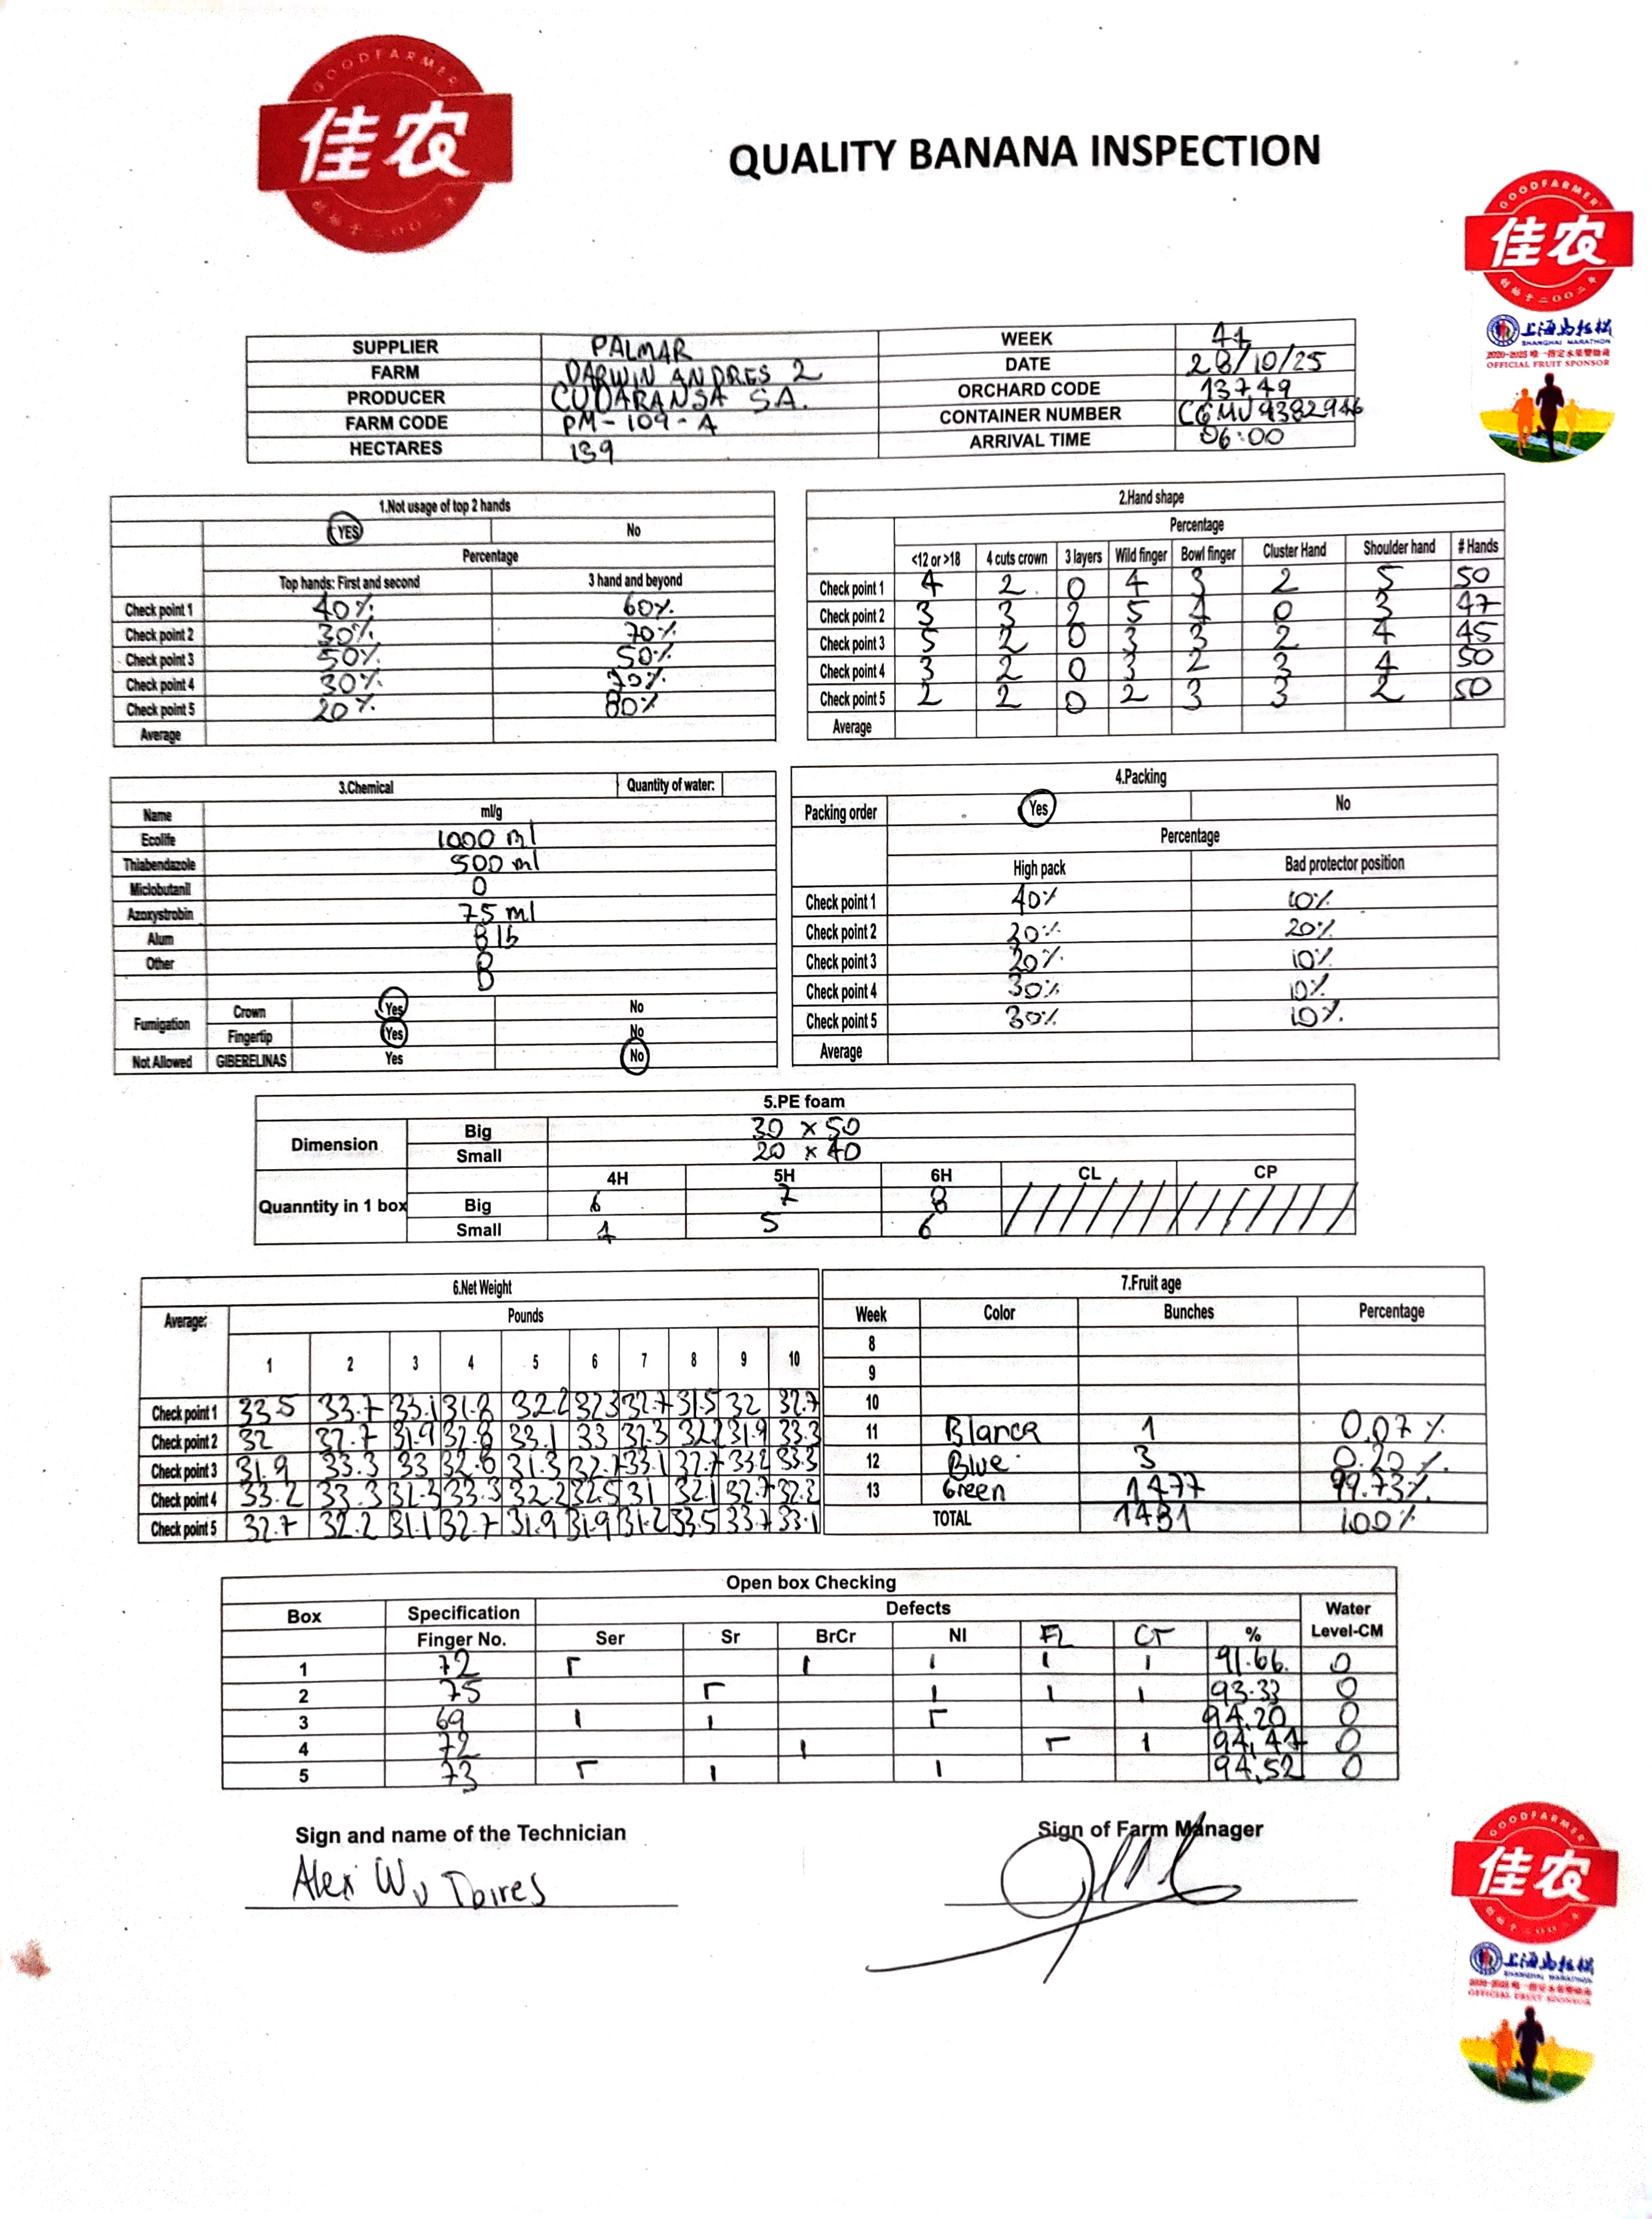 GOODFARMER
佳农
创始于二〇〇二年
QUALITY BANANA INSPECTION
GOODFARMER
佳农
创始于二〇〇二年
上海马拉松
SHANGHAI MARATHON
OFFICIAL FRUIT SPONSOR
SUPPLIER PALMAR WEEK 44
FARM DARWIN ANDRES 2 DATE 28/10/25
PRODUCER CUDARANSA SA. ORCHARD CODE 13749
FARM CODE PM-109-A CONTAINER NUMBER CGMU9382946
HECTARES 139 ARRIVAL TIME 06:00
1.Not usage of top 2 hands
YES No
Percentage
Top hands: First and second 3 hand and beyond
Check point 1 40% 60%
Check point 2 30% 70%
Check point 3 50% 50%
Check point 4 30% 70%
Check point 5 20% 80%
Average
2.Hand shape
Percentage
<12 or >18 4 cuts crown 3 layers Wild finger Bowl finger Cluster Hand Shoulder hand # Hands
Check point 1 4 2 0 4 3 2 5 50
Check point 2 3 3 2 5 4 0 3 47
Check point 3 5 2 0 3 3 2 4 45
Check point 4 3 2 0 3 2 3 4 50
Check point 5 2 2 0 2 3 3 2 50
Average
3.Chemical Quantity of water:
Name ml/g
Ecolife 1000 ml
Thiabendazole 500 ml
Miclobutanil 0
Azoxystrobin 75 ml
Alum 8 lb
Other 0
0
Fumigation Crown Yes No
Fingertip Yes No
Not Allowed GIBERELINAS Yes No
4.Packing
Packing order Yes No
Percentage
High pack Bad protector position
Check point 1 40% 10%
Check point 2 20% 20%
Check point 3 20% 10%
Check point 4 30% 10%
Check point 5 30% 10%
Average
5.PE foam
Dimension Big 30 x 50
Small 20 x 40
4H 5H 6H CL CP
Quanntity in 1 box Big 6 7 8
Small 4 5 6
6.Net Weight
Average: Pounds
1 2 3 4 5 6 7 8 9 10
Check point 1 33.5 33.7 33.1 31.8 32.2 32.3 32.7 31.5 32 32.7
Check point 2 32 32.7 31.9 32.8 33.1 33 32.3 32.2 31.9 33.3
Check point 3 31.9 33.3 33 32.6 31.3 32.7 33.1 32.7 33.2 33.3
Check point 4 33.2 33.3 31.3 33.3 32.2 32.5 31 32.1 32.7 32.2
Check point 5 32.7 32.2 31.1 32.7 31.9 31.9 31.2 33.5 33.7 33.1
7.Fruit age
Week Color Bunches Percentage
8
9
10
11 Blanca 1 0.07%
12 Blue 3 0.20%
13 Green 1477 99.73%
TOTAL 1481 100%
Open box Checking
Box Specification Defects Water
Finger No. Ser Sr BrCr NI FL CT % Level-CM
1 72 Γ I I I I 91.66. 0
2 75 Γ I I I 93.33 0
3 69 I I Γ 94.20 0
4 72 I Γ I 94,44 0
5 73 Γ I I 94,52 0
Sign and name of the Technician Sign of Farm Manager
Alex Wu
GOODFARMER
佳农
创始于二〇〇二年
上海马拉松
OFFICIAL FRUIT SPONSOR